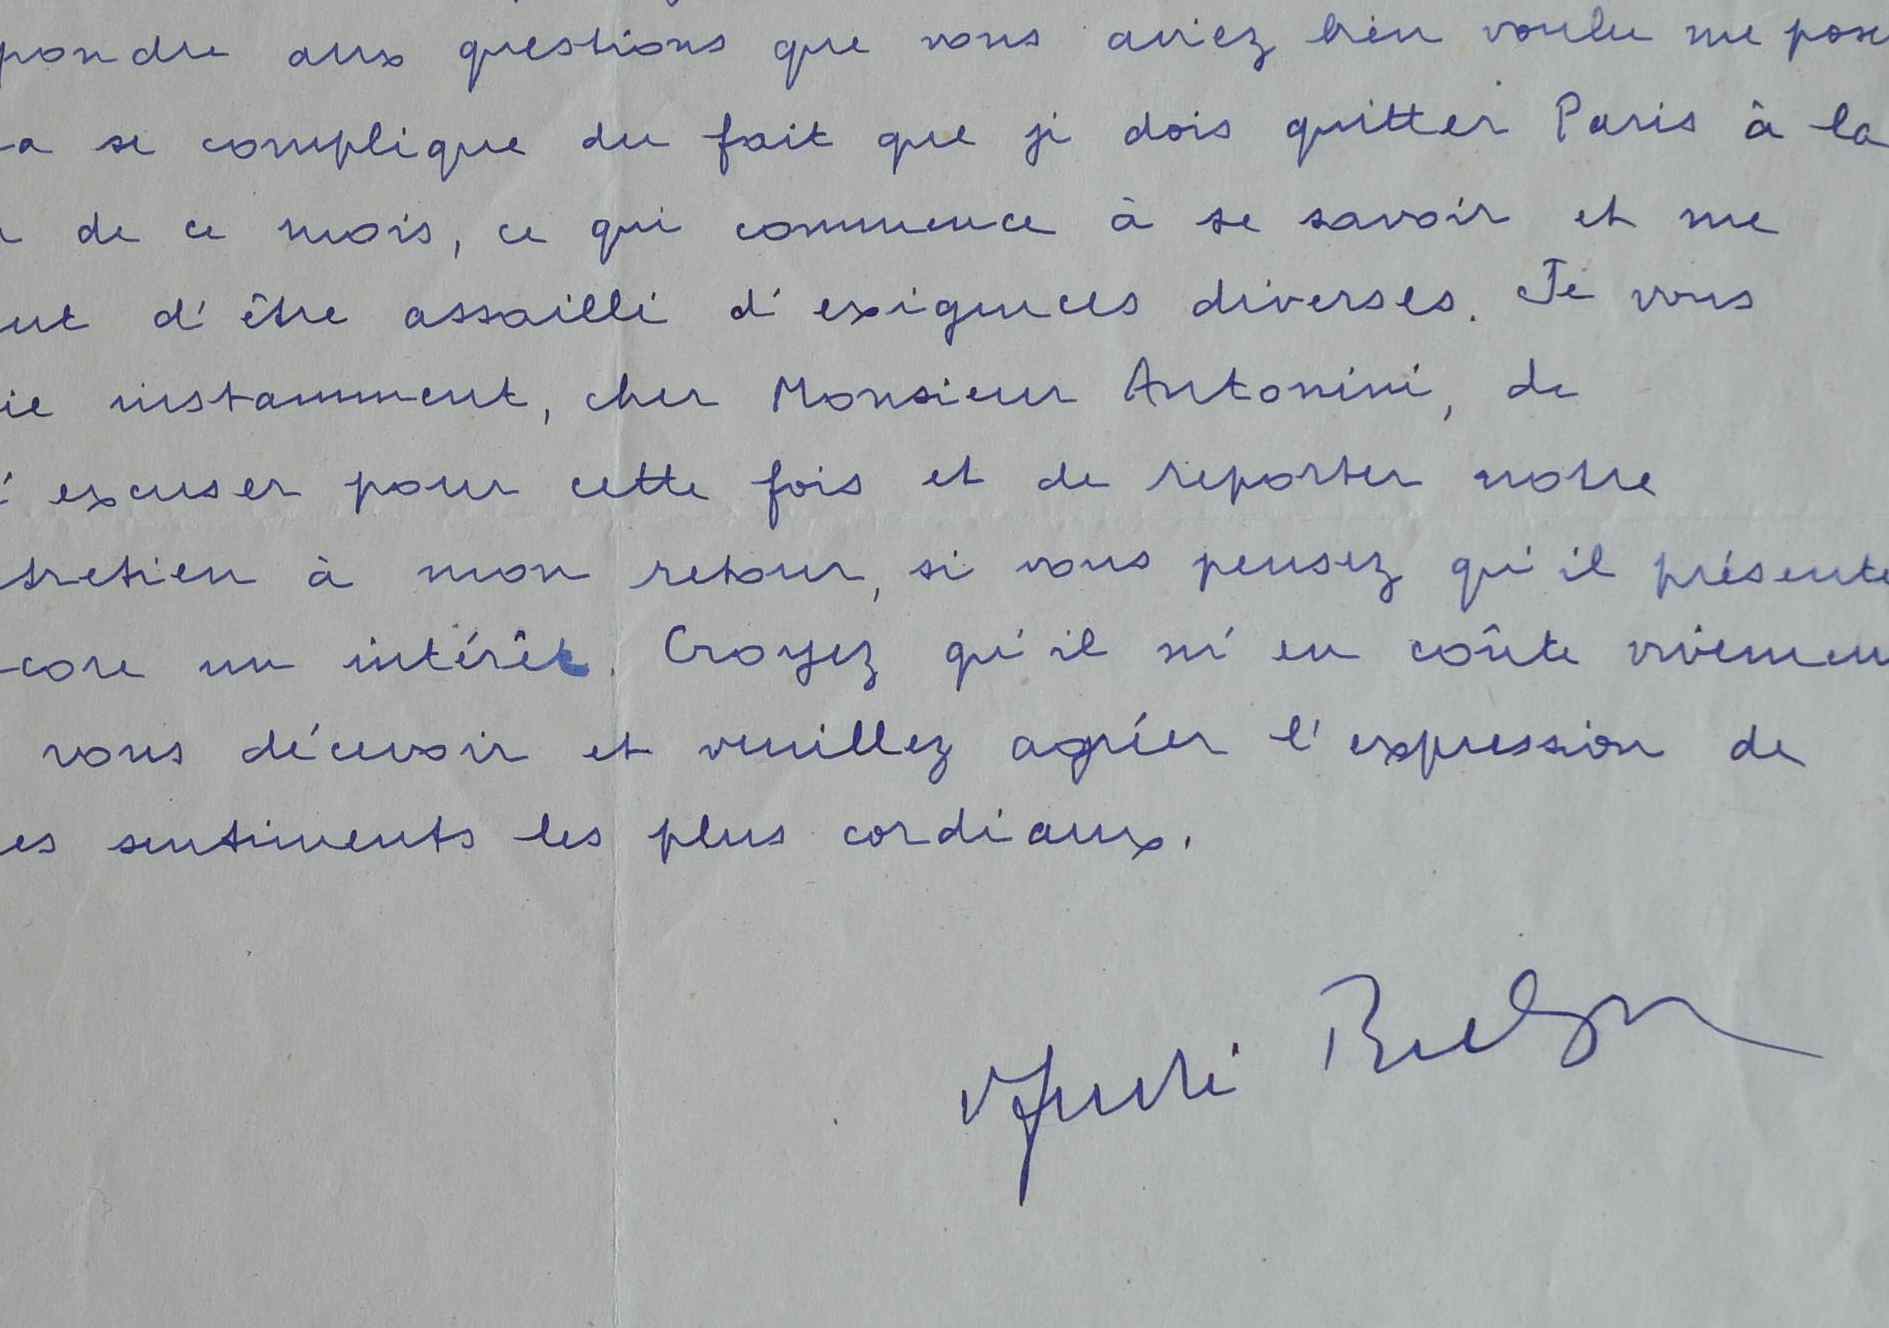 pondre aux questions que vous aviez bien voulu me pose
a se complique du fait que je dois quitter Paris à la
de ce mois, ce qui commence à se savoir et me
ut d'être assailli d'exigences diverses. Je vous
ie instamment, cher Monsieur Antonini, de
' excuser pour cette fois et de reporter notre
tretien à mon retour, si vous pensez qu'il présente
core un intérêt. Croyez qu'il m'en coûte vivemen
vous décevoir et veuillez agréer l'expression de
es sentiments les plus cordiaux.
André Breton